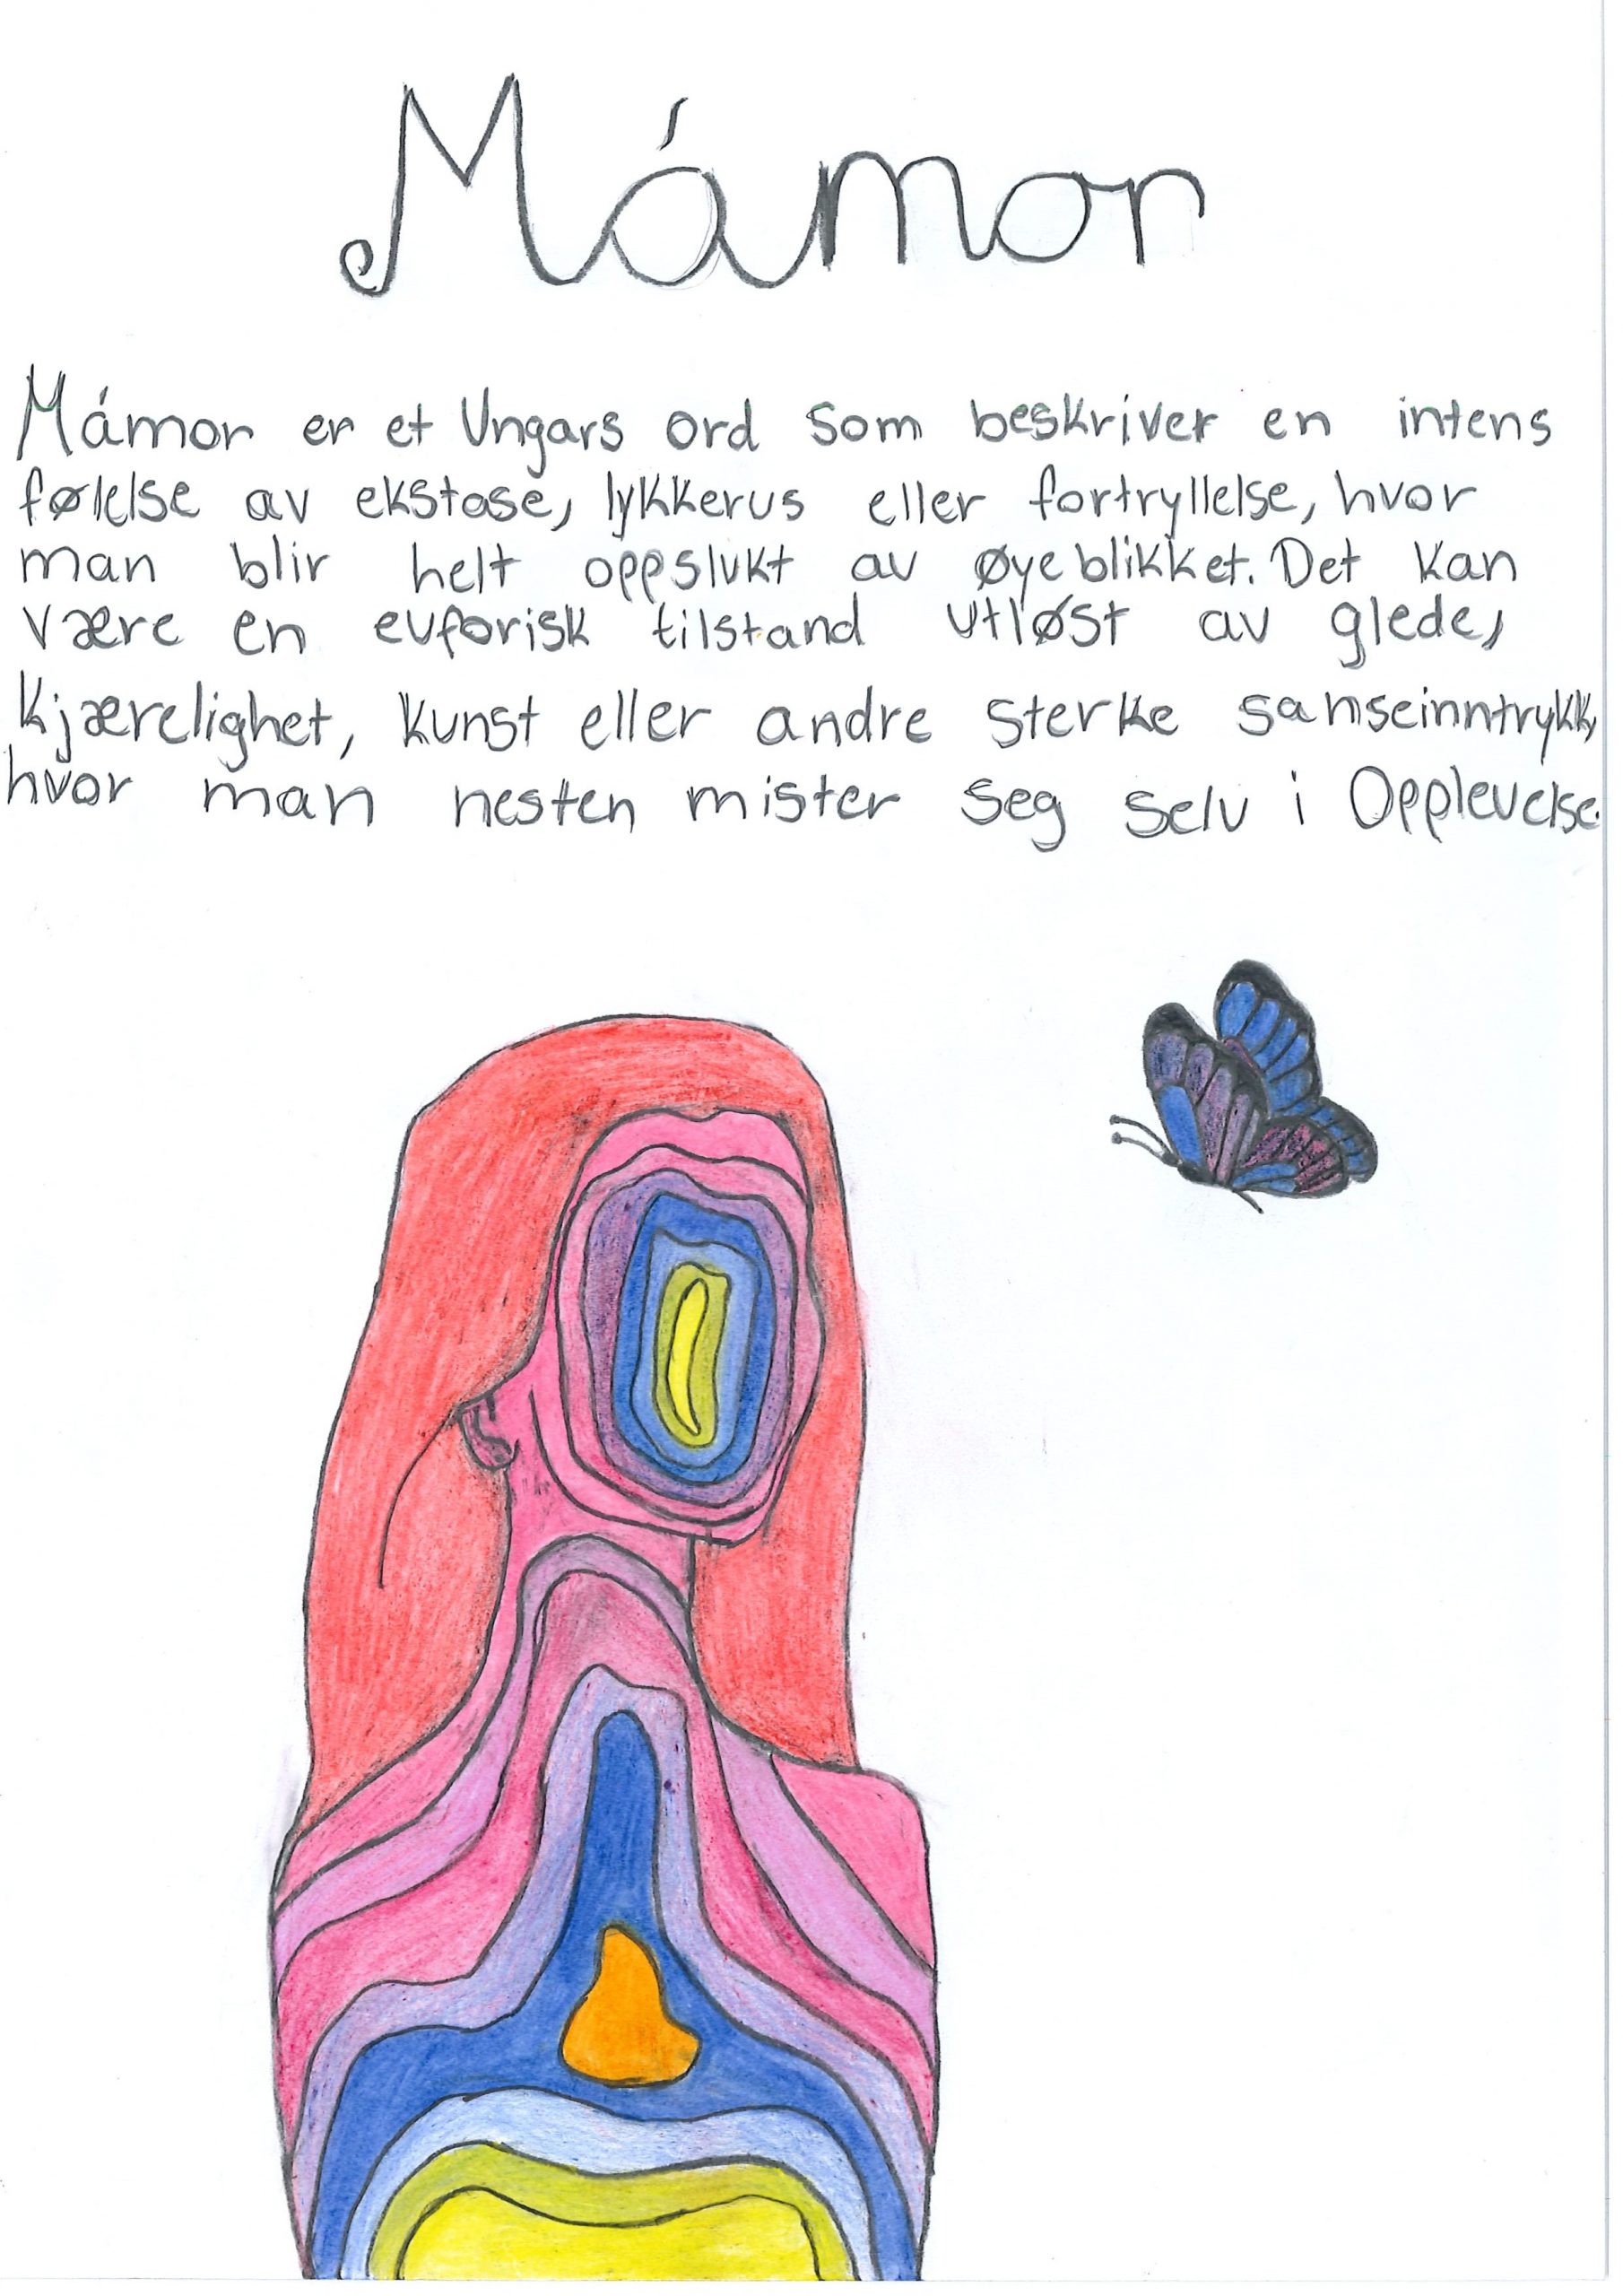 Mámor
Mámor er et Ungars ord som beskriver en intens
følelse av ekstase, lykkerus eller fortryllelse, hvor
man blir helt oppslukt av øyeblikket. Det kan
være en euforisk tilstand utløst av glede,
kjærelighet, kunst eller andre sterke sanseinntrykk,
hvor man nesten mister seg selv i Opplevelse.